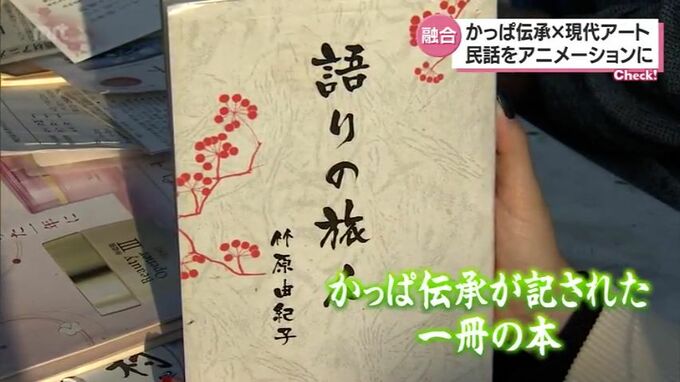 融合
かっぱ伝承×現代アート
民話をアニメーションに
Check!
語りの旅人
竹原由紀子
かっぱ伝承が記された
一冊の本
Beauty
Opener III
た一年に